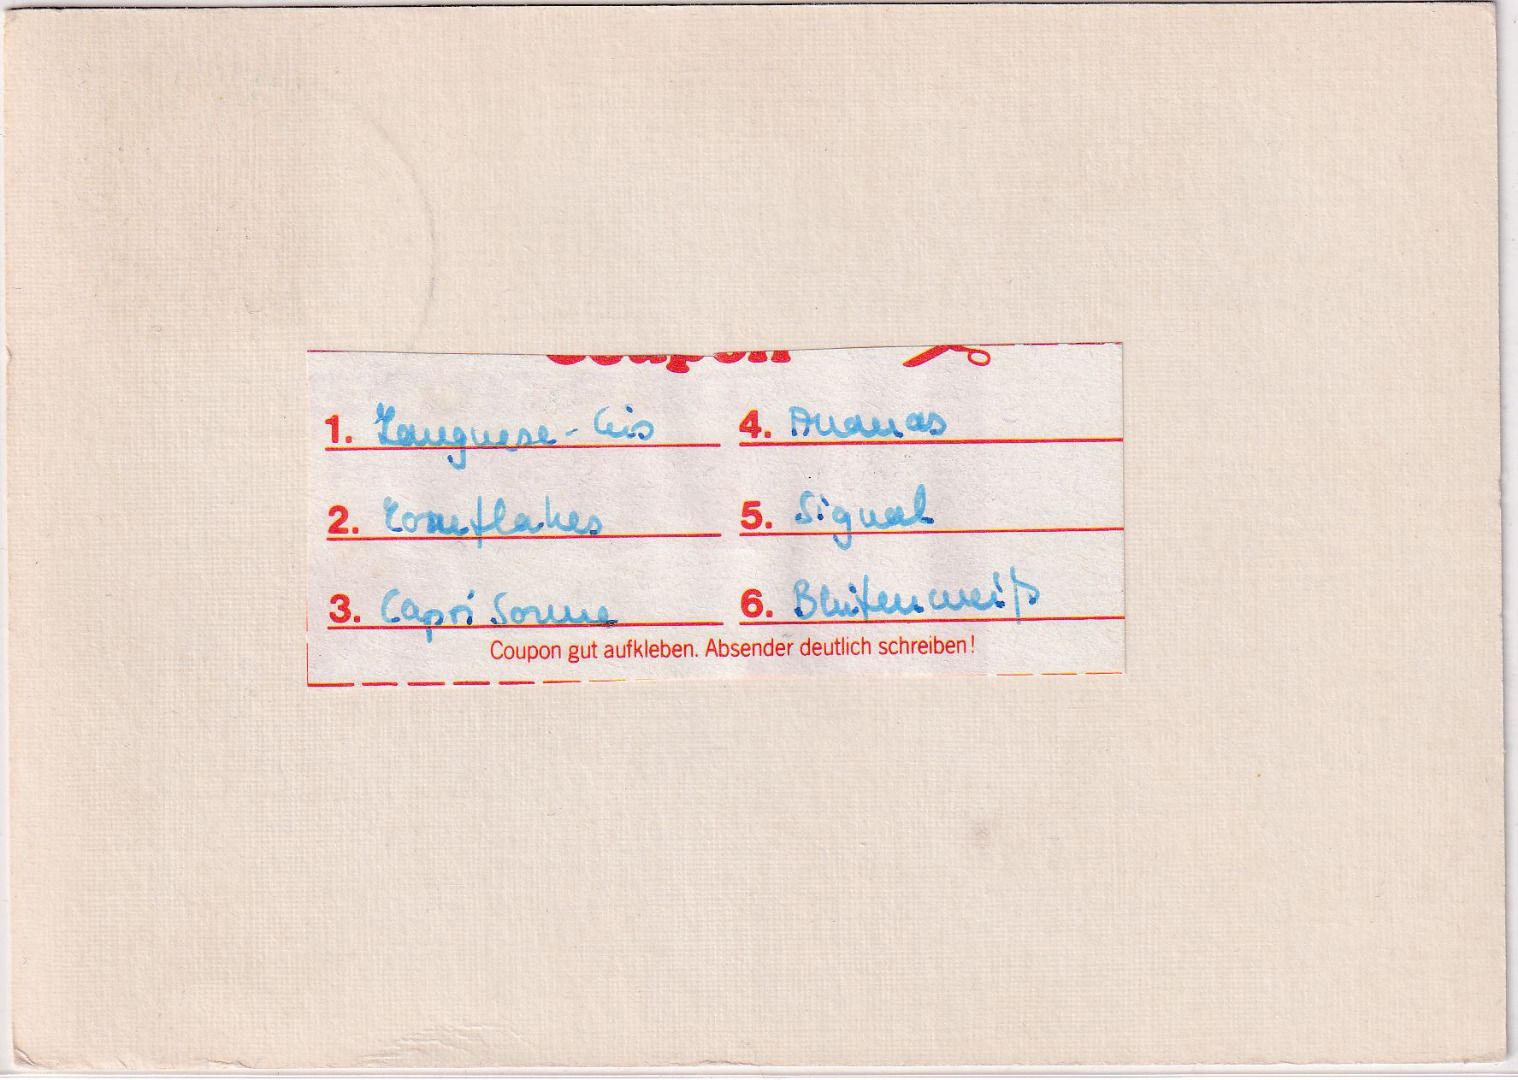 Coupon
1. Langnese-Eis
2. Cornflakes
3. Capri Sonne
4. Ananas
5. Signal
6. Blütenweiß
Coupon gut aufkleben. Absender deutlich schreiben!